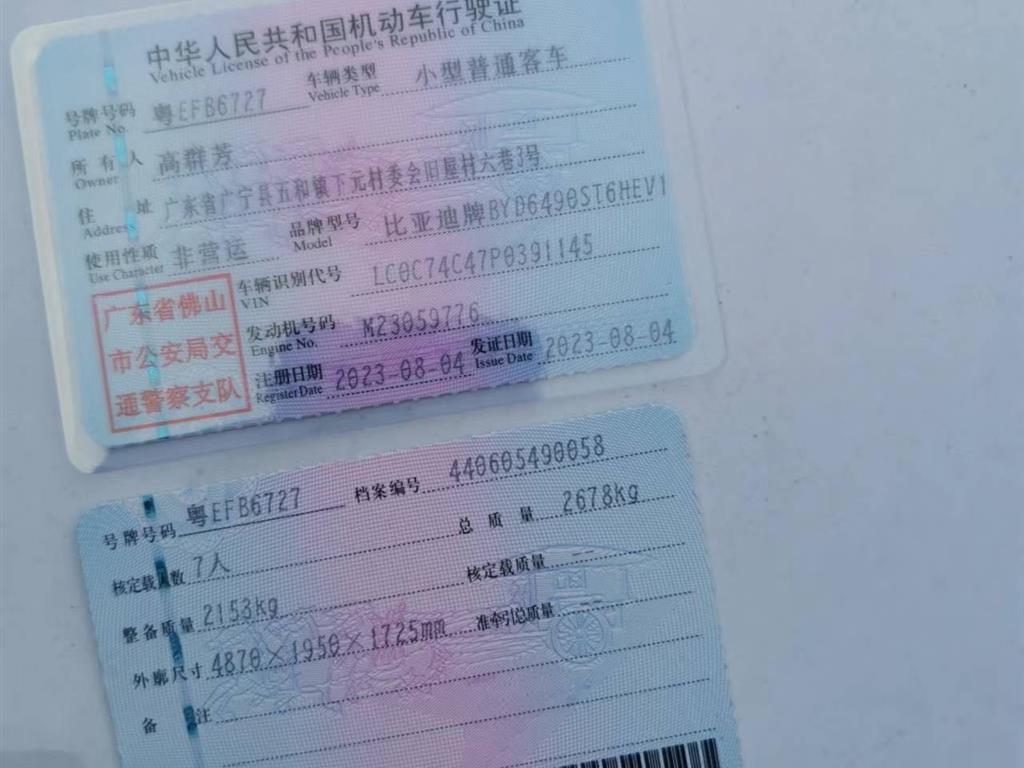 中华人民共和国机动车行驶证
Vehicle License of the People's Republic of China
号牌号码 粤EFB6727 车辆类型 小型普通客车
Plate No. Vehicle Type
所有人 高群芳
Owner
住址 广东省广宁县五和镇下元村委会旧屋村六巷3号
Address
使用性质 非营运 品牌型号 比亚迪牌BYD6490ST6HEV1
Use Character Model
车辆识别代号 LC0C74C47P0391145
VIN
发动机号码 M23059776
Engine No.
注册日期 2023-08-04 发证日期 2023-08-04
Register Date Issue Date
广东省佛山
市公安局交
通警察支队
号牌号码 粤EFB6727 档案编号 440605490058
核定载人数 7人 总质量 2678kg
整备质量 2153kg 核定载质量 --
外廓尺寸 4870×1950×1725mm 准牵引总质量 --
备注